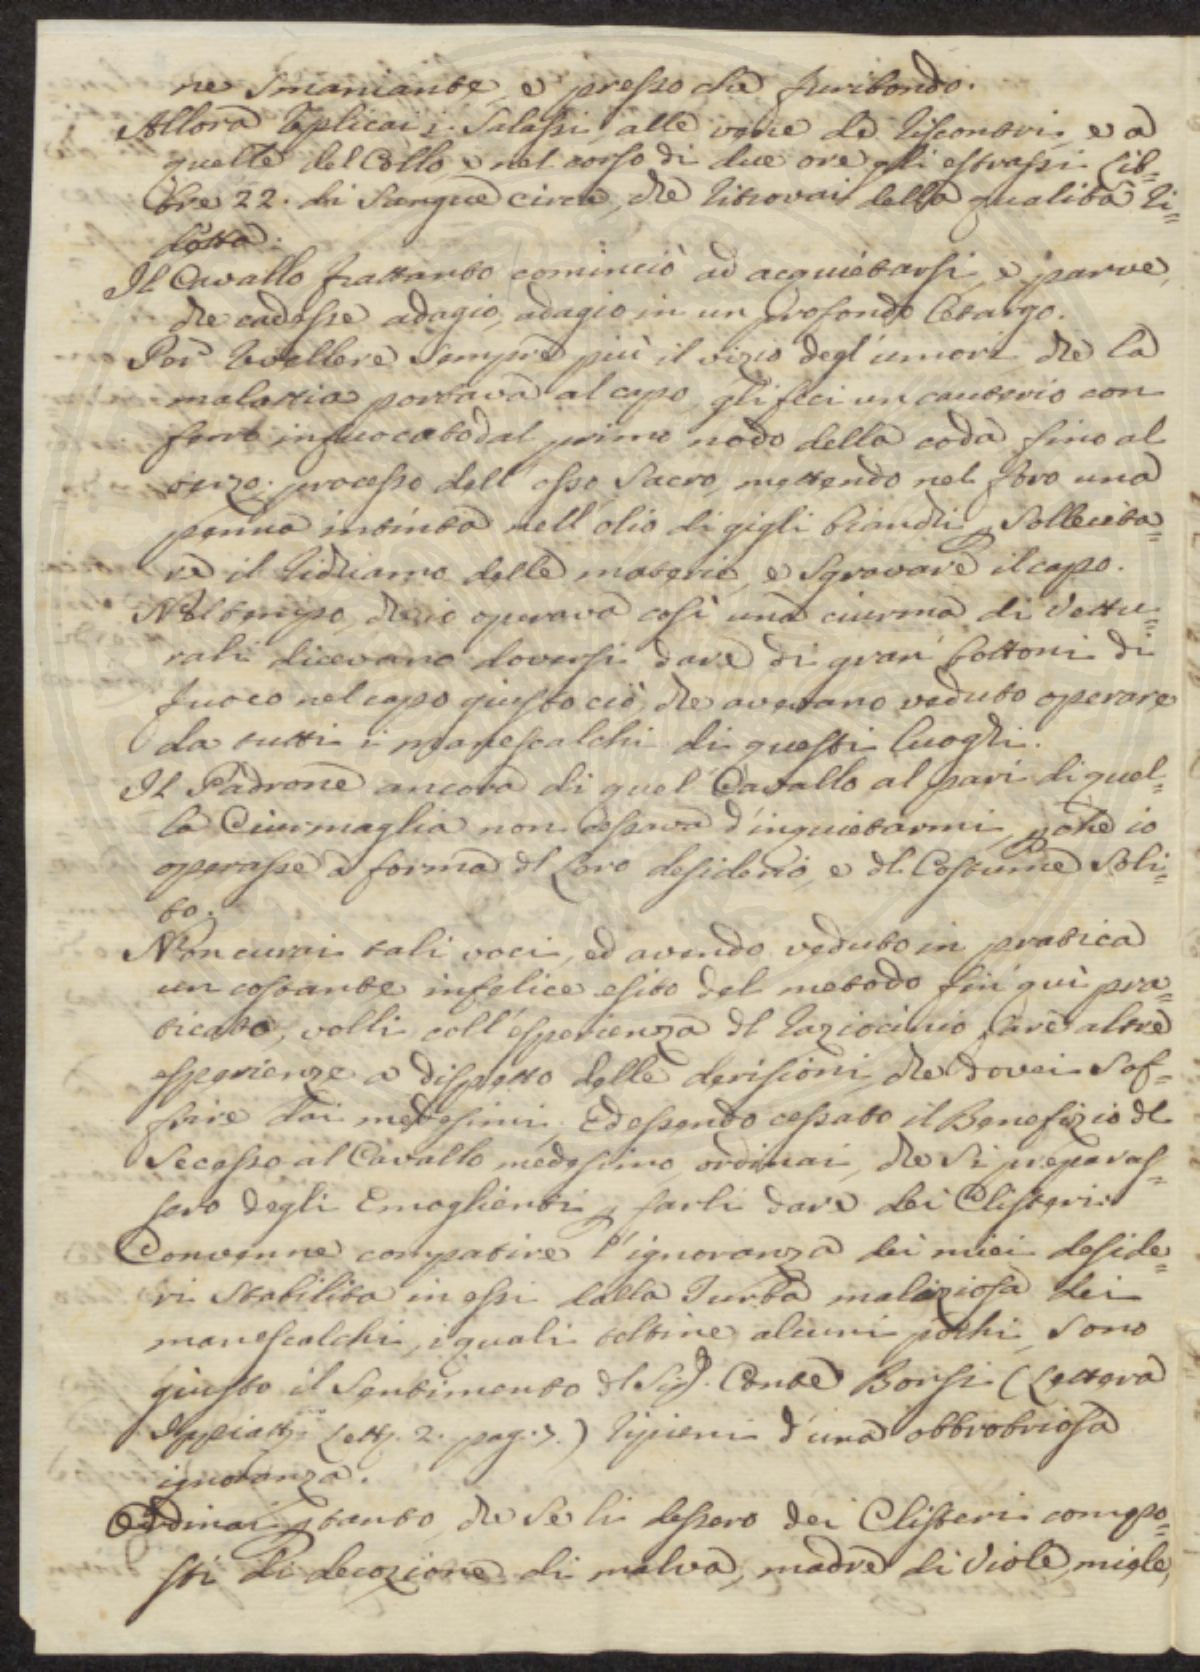 ne Smaniante, e presso che furibondo.
Allora replicai i Salassi alle vene de riscontri, e a
quelle del Collo, e nel corso di due ore gli estrassi Lib=
bre 22. di Sangue circa, che ritrovai della qualità ri=
detta.
Il Cavallo frattanto cominciò ad acquietarsi, e parve,
che cadesse adagio, adagio in un profondo letargo.
Per revellere sempre più il vizio degl'umori che la
malattia portava al capo, gli feci un cauterio con
ferro infuocato dal primo nodo della coda fino al
terzo processo dell'osso Sacro, mettendo nel foro una
penna intinta nell'olio di gigli bianchi p Sollecita=
re il richiamo delle materie, e Sgravare il capo.
Nel tempo, che io operava così una ciurma di Vettu=
rali dicevano doversi dare di gran bottoni di
fuoco nel capo giusto ciò, che avevano veduto operare
da tutti i manescalchi di questi luoghi.
Il Padrone ancora di quel Cavallo al pari di quel=
la Ciurmaglia non cessava d'inquietarmi, pché io
operasse a forma dl loro desiderio, e dl Costume Soli=
to.
Non curai tali voci, ed avendo veduto in pratica
un costante infelice esito del metodo fin quì pra=
ticato, volli coll'esperienza dl raziocinio fare altre
esperienze a dispetto delle derisioni, che dovei Sof=
frire dai medesimi. Ed essendo cessato il Benefizio dl
Secesso al Cavallo medesimo, ordinai, che Si preparas=
sero degli Emoglienti p farli dare dei Clisteri.
Convenne compatire l'ignoranza dei miei deside=
ri stabilita in essi dalla Turba maliziosa dei
manescalchi, i quali toltine alcuni pochi, sono
giusto il Sentimento dl Sig. Conte Borsi (Lettera
Ippiatr. Lett. 2. pag. 7.) ripieni d'una obbrobriosa
ignoranza.
Ordinai ptanto, che Se li dessero dei Clisteri compo=
sti di decozione di malva, madre di Viole, miele,